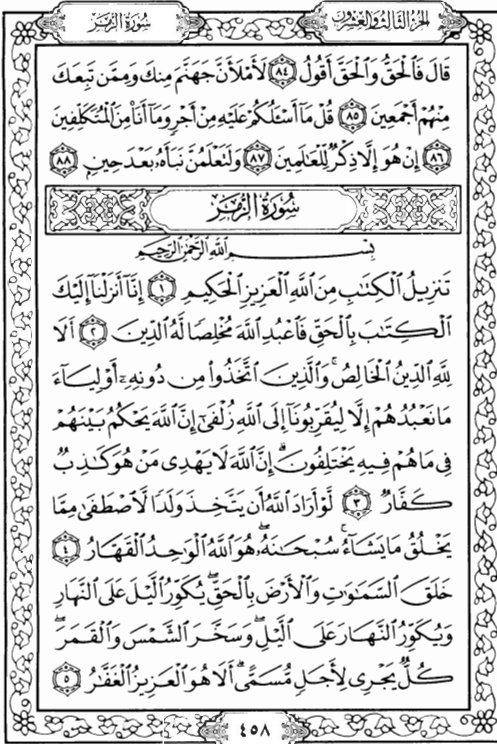 سُورَةُ الزُّمَرِ
الجُزءُ الثَّالِثُ وَالعِشْرُونَ
قَالَ فَٱلْحَقُّ وَٱلْحَقَّ أَقُولُ ٨٤ لَأَمْلَأَنَّ جَهَنَّمَ مِنكَ وَمِمَّن تَبِعَكَ
مِنْهُمْ أَجْمَعِينَ ٨٥ قُلْ مَآ أَسْـَٔلُكُمْ عَلَيْهِ مِنْ أَجْرٍ وَمَآ أَنَا۠ مِنَ ٱلْمُتَكَلِّفِينَ
٨٦ إِنْ هُوَ إِلَّا ذِكْرٌ لِّلْعَٰلَمِينَ ٨٧ وَلَتَعْلَمُنَّ نَبَأَهُۥ بَعْدَ حِينٍۭ ٨٨
سُورَةُ الزُّمَرِ
بِسْمِ ٱللَّهِ ٱلرَّحْمَٰنِ ٱلرَّحِيمِ
تَنزِيلُ ٱلْكِتَٰبِ مِنَ ٱللَّهِ ٱلْعَزِيزِ ٱلْحَكِيمِ ١ إِنَّآ أَنزَلْنَآ إِلَيْكَ
ٱلْكِتَٰبَ بِٱلْحَقِّ فَٱعْبُدِ ٱللَّهَ مُخْلِصًا لَّهُ ٱلدِّينَ ٢ أَلَا
لِلَّهِ ٱلدِّينُ ٱلْخَالِصُ ۚ وَٱلَّذِينَ ٱتَّخَذُوا۟ مِن دُونِهِۦٓ أَوْلِيَآءَ
مَا نَعْبُدُهُمْ إِلَّا لِيُقَرِّبُونَآ إِلَى ٱللَّهِ زُلْفَىٰٓ إِنَّ ٱللَّهَ يَحْكُمُ بَيْنَهُمْ
فِى مَا هُمْ فِيهِ يَخْتَلِفُونَ ۗ إِنَّ ٱللَّهَ لَا يَهْدِى مَنْ هُوَ كَٰذِبٌ
كَفَّارٌ ٣ لَّوْ أَرَادَ ٱللَّهُ أَن يَتَّخِذَ وَلَدًا لَّٱصْطَفَىٰ مِمَّا
يَخْلُقُ مَا يَشَآءُ ۚ سُبْحَٰنَهُۥ ۖ هُوَ ٱللَّهُ ٱلْوَٰحِدُ ٱلْقَهَّارُ ٤
خَلَقَ ٱلسَّمَٰوَٰتِ وَٱلْأَرْضَ بِٱلْحَقِّ ۖ يُكَوِّرُ ٱلَّيْلَ عَلَى ٱلنَّهَارِ
وَيُكَوِّرُ ٱلنَّهَارَ عَلَى ٱلَّيْلِ ۖ وَسَخَّرَ ٱلشَّمْسَ وَٱلْقَمَرَ ۖ
كُلٌّ يَجْرِى لِأَجَلٍ مُّسَمًّى ۗ أَلَا هُوَ ٱلْعَزِيزُ ٱلْغَفَّٰرُ ٥
٤٥٨